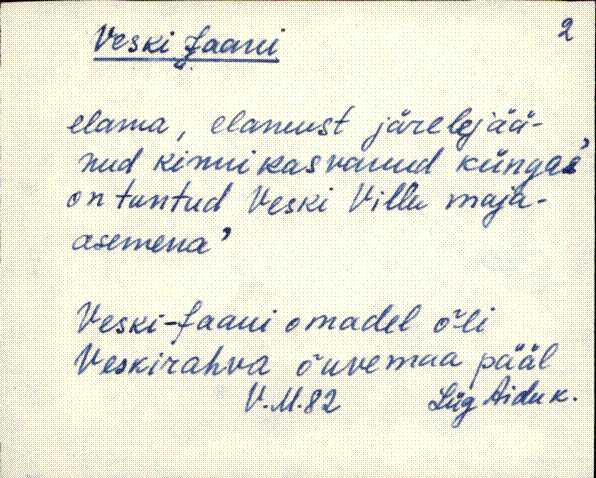 Veski Jaani 2
elama, elamust järelejää-
nud kinnikasvanud küngas
on tuntud Veski Villu maja-
asemena’
Veski-Jaani omadel õli
Veskirahva õuvemaa pääl
V.M.82 Lüg Aidu k.